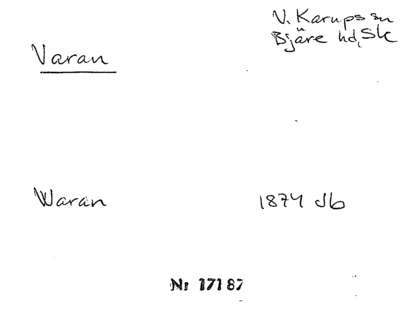 V. Karups sn
Bjäre hd, Sk
Varan
Waran 1874 Jb
Nr 17187